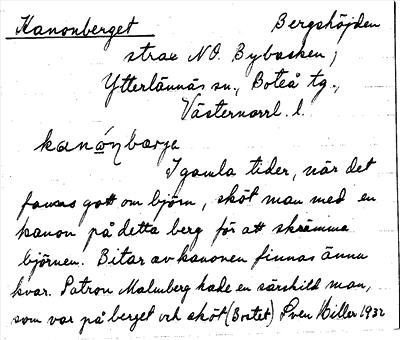 Kanonberget Bergshöjden
strax NO. Bybacken;
Ytterlännäs sn., Boteå tg.,
Västernorrl. l.
kanónbærja
I gamla tider, när det
fanns gott om björn, sköt man med en
kanon på detta berg för att skrämma
björnen. Bitar av kanonen finnas ännu
kvar. Patron Malmberg hade en särskild man,
som var på berget och sköt (Bortet) Sven Hiller 1932